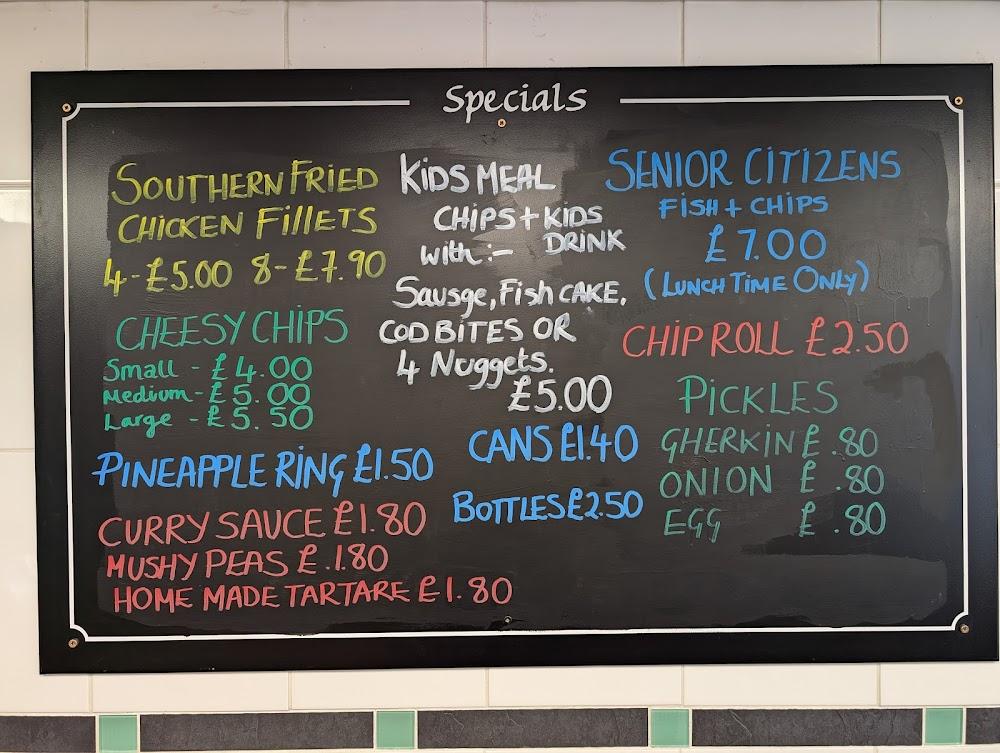 Specials
SOUTHERN FRIED
CHICKEN FillETS
4-£5.00 8-£7.90
CHEESY CHIPS
Small - £4.00
Medium - £5.00
Large - £5.50
PINEAPPLE RING £1.50
CURRY SAUCE £1.80
MUSHY PEAS £.1.80
HOME MADE TARTARE £1.80
KiDS MEAL
CHIPS + KIDS
with :- DRINK
Sausge, Fish CAKE,
COD BITES OR
4 Nuggets.
£5.00
CANS £1.40
BOTTLES £2.50
SENIOR CITIZENS
FISH + CHIPS
£7.00
(LUNCH TIME ONLY)
CHIP ROLL £2.50
PICKLES
GHERKIN £.80
ONION £.80
EGG £.80